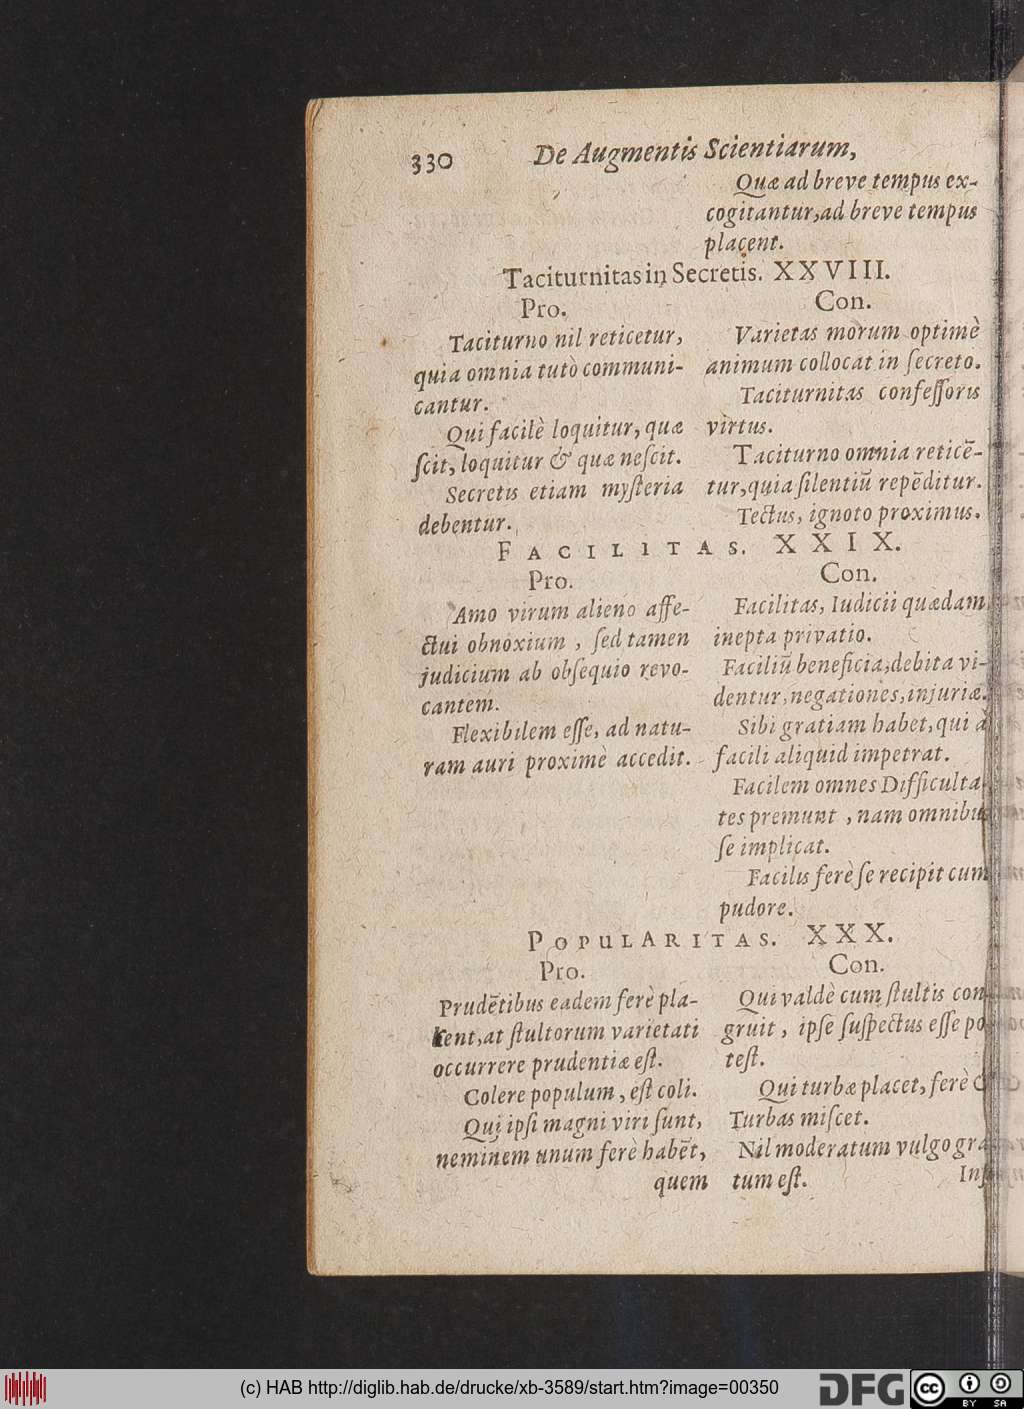 330 De Augmentis Scientiarum,
Quæ ad breve tempus ex-
cogitantur, ad breve tempus
placent.
Taciturnitas in Secretis. XXVIII.
Pro.
Taciturno nil reticetur,
quia omnia tutò communi-
cantur.
Qui facilè loquitur, quæ
ſcit, loquitur & quæ neſcit.
Secretis etiam myſteria
debentur.
Con.
Varietas morum optimè
animum collocat in ſecreto.
Taciturnitas confeſſoris
virtus.
Taciturno omnia reticē-
tur, quia ſilentiū repēditur.
Tectus, ignoto proximus.
FACILITAS. XXIX.
Pro.
Amo virum alieno affe-
ctui obnoxium, ſed tamen
judicium ab obſequio revo-
cantem.
Flexibilem eſſe, ad natu-
ram auri proximè accedit.
Con.
Facilitas, Iudicii quædam
inepta privatio.
Faciliū beneficia, debita vi-
dentur, negationes, injuriæ.
Sibi gratiam habet, qui à
facili aliquid impetrat.
Facilem omnes Difficulta-
tes premunt, nam omnibus
ſe implicat.
Facilis ferè ſe recipit cum
pudore.
POPULARITAS. XXX.
Pro.
Prudētibus eadem ferè pla-
cent, at ſtultorum varietati
occurrere prudentiæ eſt.
Colere populum, eſt coli.
Qui ipſi magni viri ſunt,
neminem unum ferè habēt,
quem
Con.
Qui valdè cum ſtultis con
gruit, ipſe ſuſpectus eſſe po
teſt.
Qui turbæ placet, ferè &
Turbas miſcet.
Nil moderatum vulgo gra
tum eſt.
(c) HAB http://diglib.hab.de/drucke/xb-3589/start.htm?image=00350
DFG
cc BY SA